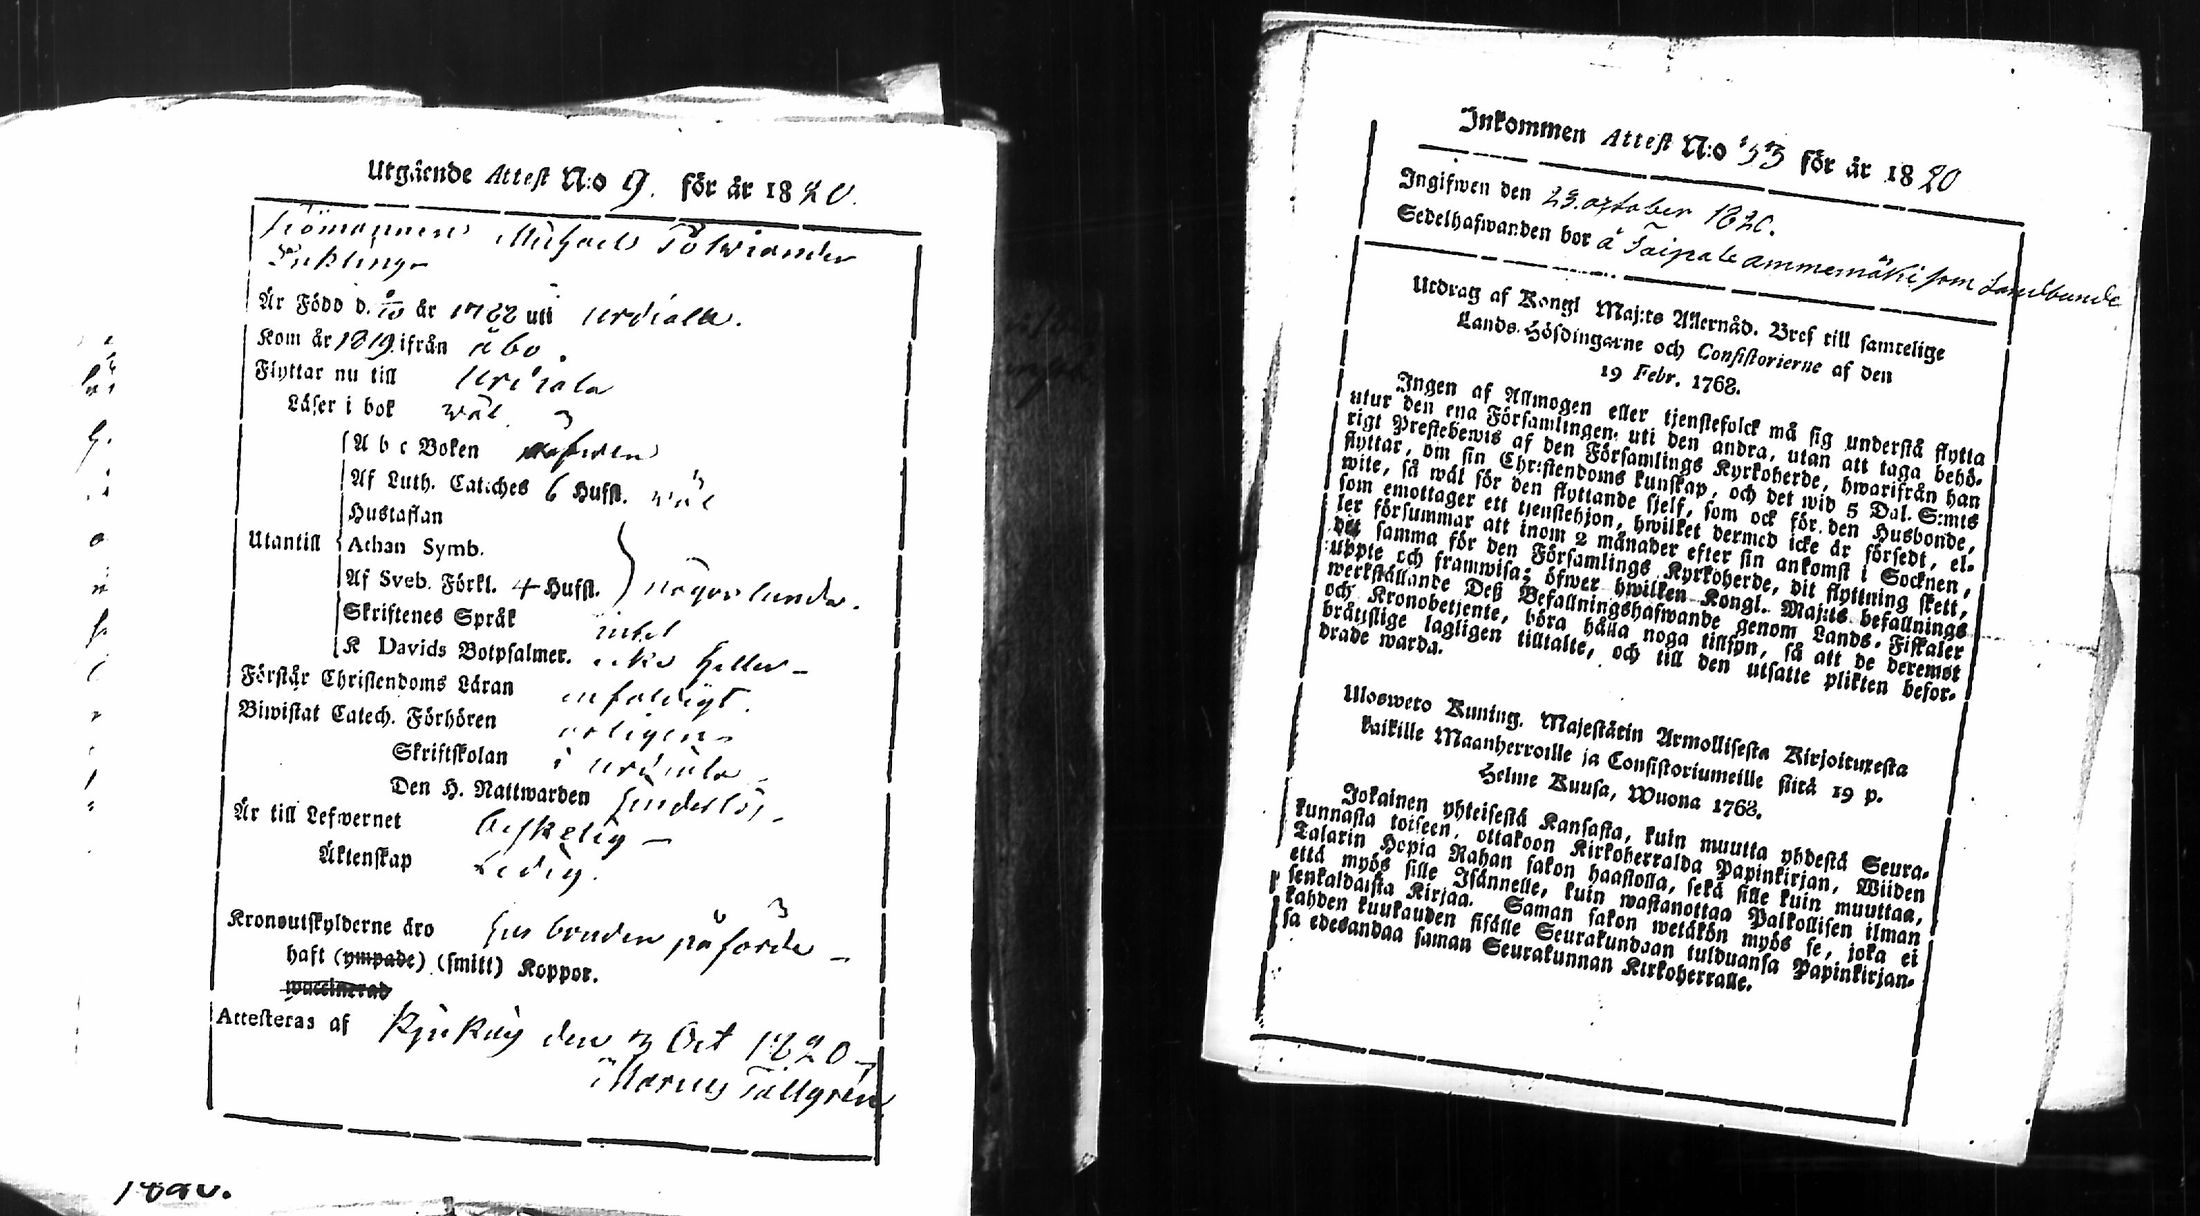 Utgående Attest N:o 9. för år 1820.
Michael
Är Född d. år 1788 uti Urdiala.
Kom år 1819 ifrån åbo.
Flyttar nu till Urdiala
Läser i bok wäl
A b c Boken
Af Luth. Catches 6 Hufst. wäl
Hustaflan
Utantill
Athan Symb.
Af Sveb. Förkl. 4 Hufst. någorlunda.
Skriftenes Språk intet
K Davids Botpsalmer. icke heller -
Förstår Christendoms Läran enfaldigt.
Biwistat Catech. Förhören årligen
Skriftskolan i Urdiala -
Den H. Nattwarden
Är till Lefwernet beskedlig -
Äktenskap Ledig.
Kronoutskylderne äro husbonden påförde -
haft (ympade) (smitt) Koppor.
waccinerad
Attesteras af den Oct 1820 -
Tällgrén
1820.
Inkommen Attest N:o 33 för år 1820
Ingifwen den 23. october 1820.
Sedelhafwanden bor å Taipale ammemäki som Landbonde
Utdrag af Kongl Maj:ts Allernåd. Bref till samtelige
Lands-Höfdingarne och Consistorierne af den
19 Febr. 1768.
Ingen af Allmogen eller tjenstefolck må sig understå flytta
utur den ena Församlingen uti den andra, utan att taga behö-
rigt Prestebewis af den Församlings Kyrkoherde, hwarifrån han
flyttar, om sin Christendoms kunskap, och det wid 5 Dal. S:mts
wite, så wäl för den flyttande sjelf, som ock för den Husbonde,
som emottager ett tjenstehjon, hwilket dermed icke är försedt, el-
ler försummar att inom 2 månader efter sin ankomst i Socknen,
det samma för den Församlings Kyrkoherde, dit flyttning skett,
uppte och framwisa; öfwer hwilken Kongl. Maj:ts befallnings
werkställande Deß Befallningshafwande genom Lands-Fiskaler
och Kronobetjente, böra hålla noga tillsyn, så att de deremot
brättslige lagligen tilltalte, och till den utsatte plikten befor-
drade warda.
Ulosweto Kuning. Majestätin Armollisesta Kirjoituxesta
kaikille Maanherroille ja Consistoriumeille siitä 19 p.
Helme Kuusa, Wuona 1768.
Jokainen yhteisestä Kansasta, kuin muutta yhdestä Seura-
kunnasta toiseen, ottakoon Kirkoherralda Papinkirjan, Wiiden
Talarin Hopia Rahan sakon haastolla, sekä sille kuin muuttaa,
että myös sille Isännelle, kuin wastanottaa Palkollisen ilman
senkaldaista Kirjaa. Saman sakon wetäkön myös se, joka ei
kahden kuukauden sisälle Seurakundaan tulduansa Papinkirjan-
sa edesandaa saman Seurakunnan Kirkoherralle.